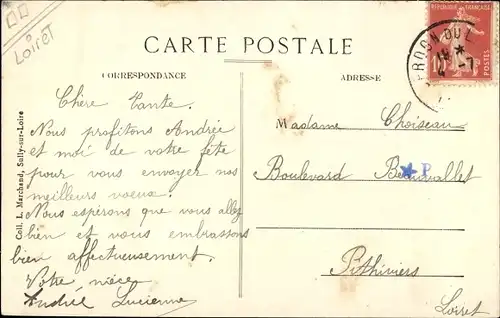 Loiret
CARTE POSTALE
CORRESPONDANCE
ADRESSE
RÉPUBLIQUE FRANÇAISE
10
POSTES
18 *
4 -7
Coll. L. Marchand, Sully-sur-Loire
Chère tante.
Nous profitons Andrée
et moi de votre fête
pour vous envoyer nos
meilleurs voeux.
Nous espérons que vous allez
bien et vous embrassons
bien affectueusement.
Votre nièce
Lucienne
Madame Choiseau
Boulevard
P
Pithiviers
Loiret